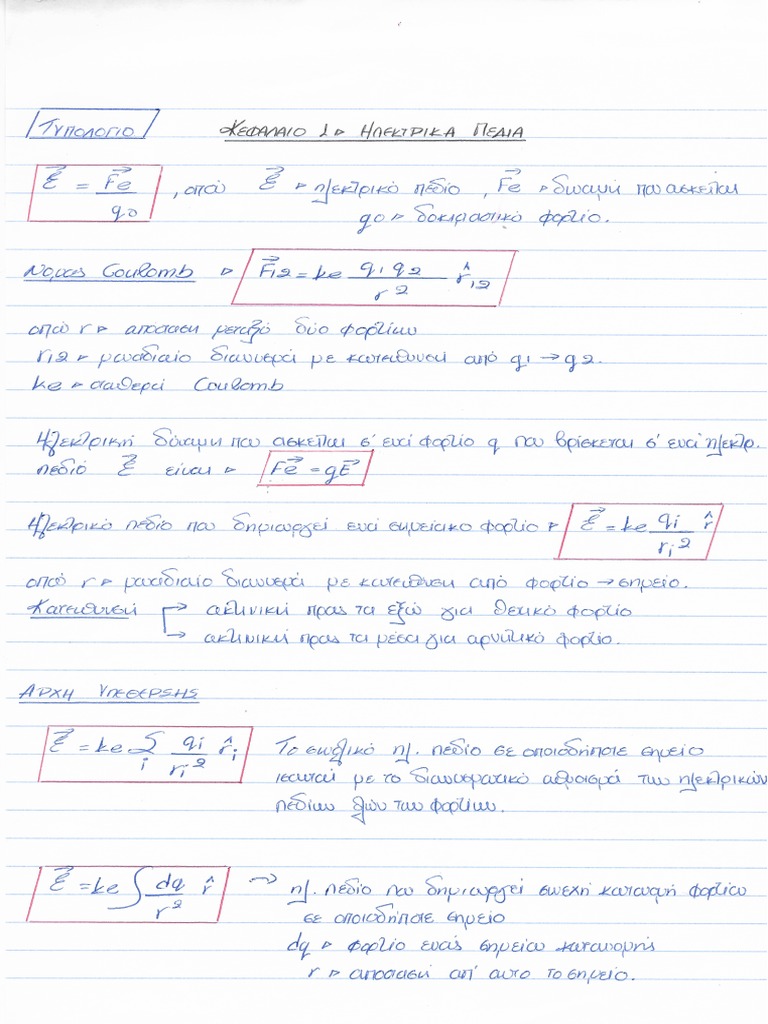 ΤΥΠΟΛΟΓΙΟ ΚΕΦΑΛΑΙΟ 1 ▹ ΗΛΕΚΤΡΙΚΑ ΠΕΔΙΑ
E⃗ = F⃗e / q0 , όπου E⃗ ▹ ηλεκτρικό πεδίο , F⃗e ▹ δύναμη που ασκείται
q0 ▹ δοκιμαστικό φορτίο.
Νόμος Coulomb ▹ F⃗12 = ke q1 q2 / r² r̂12
όπου r ▹ απόσταση μεταξύ δύο φορτίων
r12 ▹ μοναδιαίο διάνυσμα με κατεύθυνση από q1 → q2.
ke ▹ σταθερά Coulomb
Ηλεκτρική δύναμη που ασκείται σ' ένα φορτίο q που βρίσκεται σ' ένα ηλεκτρ.
πεδίο E⃗ είναι ▹ F⃗e = qE⃗
Ηλεκτρικό πεδίο που δημιουργεί ένα σημειακό φορτίο ▹ E⃗ = ke qi / ri² r̂
όπου r ▹ μοναδιαίο διάνυσμα με κατεύθυνση από φορτίο → σημείο.
Κατεύθυνση → ακτινική προς τα έξω για θετικό φορτίο
→ ακτινική προς τα μέσα για αρνητικό φορτίο.
ΑΡΧΗ ΥΠΕΘΕΡΣΗΣ
E⃗ = ke Σi qi / ri² r̂i Το συνολικό ηλ. πεδίο σε οποιοδήποτε σημείο
ισούται με το διανυσματικό άθροισμα των ηλεκτρικών
πεδίων όλων των φορτίων.
E⃗ = ke ∫ dq / r² r̂ → ηλ. πεδίο που δημιουργεί συνεχή κατανομή φορτίου
σε οποιοδήποτε σημείο
dq ▹ φορτίο ενός σημείου κατανομής
r ▹ απόσταση απ' αυτό το σημείο.